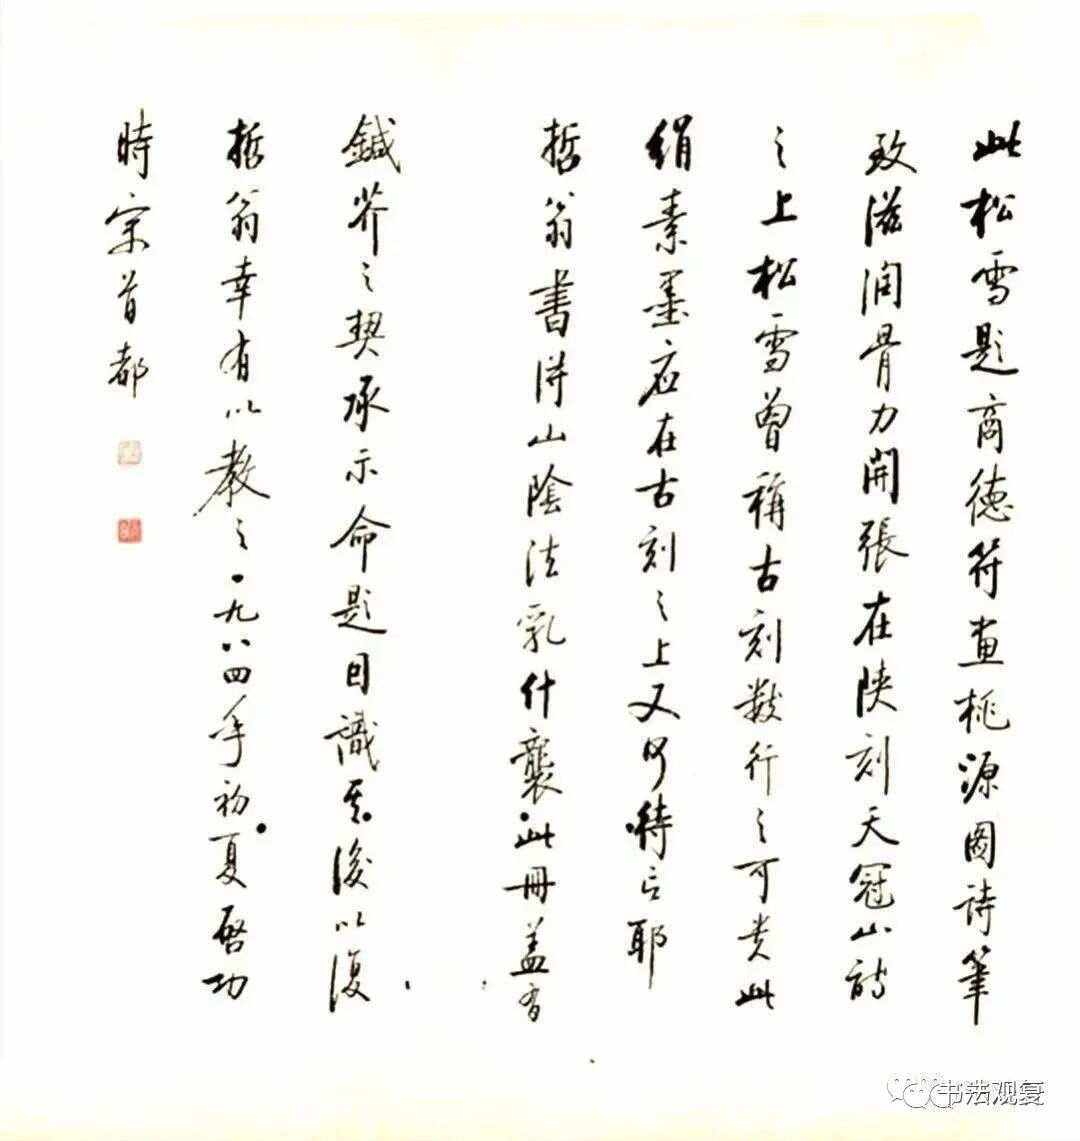 此松雪題商德符畫桃源圖詩筆
致滋潤骨力開張在陝刻天冠山詩
之上松雪曾稱古刻數行之可貴此
絹素墨應在古刻之上又何待言耶
哲翁書得山陰法乳什襲此冊蓋有
鍼芥之契承示命題因識其後以復
哲翁幸有以教之一九八四年初夏啓功
時客首都
书法观复